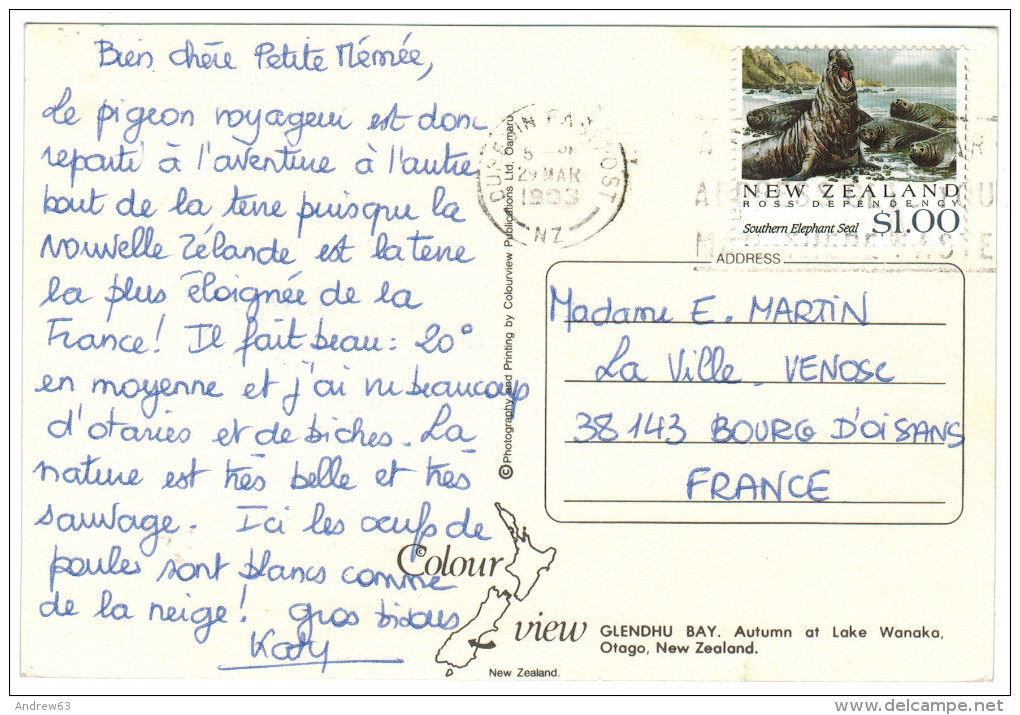 Bien chère Petite Mémée,
Le pigeon voyageur est donc
reparti à l'aventure à l'autre
bout de la terre puisque la
Nouvelle Zélande est la terre
la plus éloignée de la
France! Il fait beau : 20°
en moyenne et j'ai vu beaucoup
d'otaries et de biches. La
nature est très belle et très
sauvage. Ici les oeufs de
poules sont blancs comme
de la neige! Gros bisous
Katy
© Photography and Printing by Colourview Publications Ltd. Oamaru
29 MAR
1993
NZ
NEW ZEALAND
ROSS DEPENDENCY
Southern Elephant Seal $1.00
ADDRESS
Madame E. MARTIN
La Ville - VENOSC
38 143 BOURG D'OISANS
FRANCE
© Colour
view
New Zealand.
GLENDHU BAY. Autumn at Lake Wanaka,
Otago, New Zealand.
Andrew63
www.delcampe.net